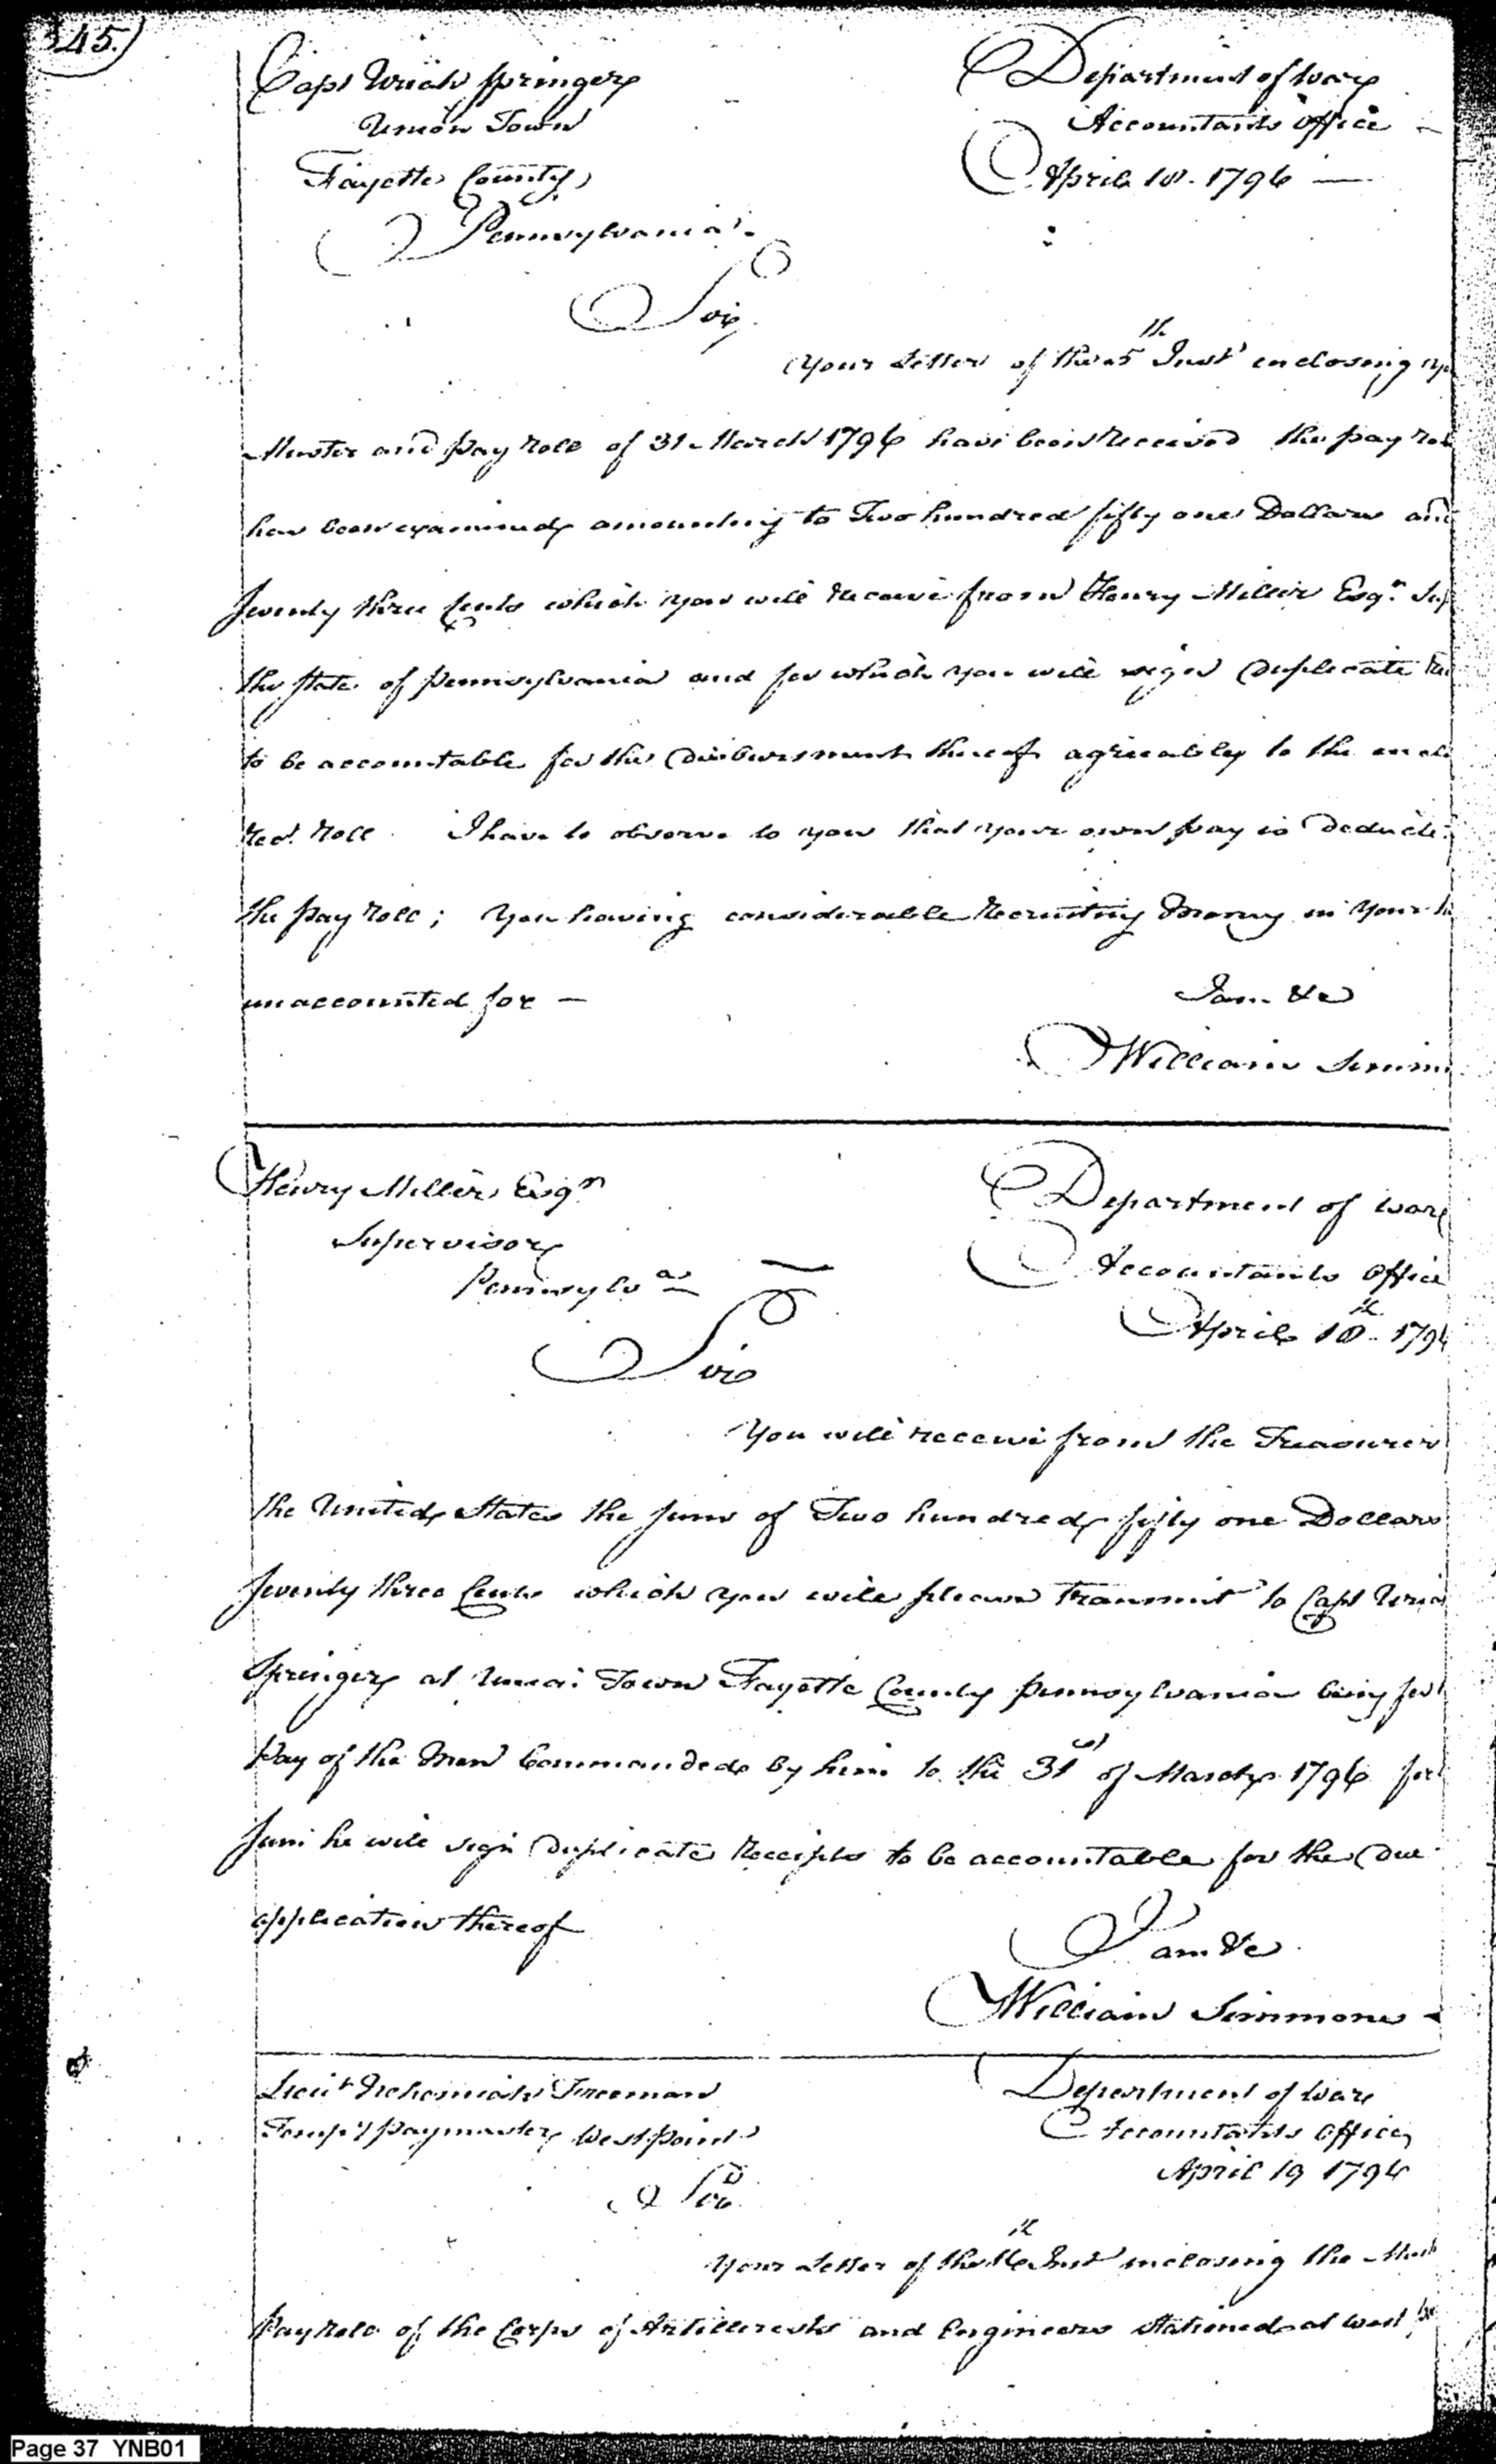 345.
Capt Uriah Springer
Union Town
Fayette County
Pennsylvania.
Department of War
Accountants office
April 18. 1796
Sir
Your Letter of the 5th Inst enclosing
Muster and pay roll of 31 March 1796 have been received the pay
has been examined amounting to Two hundred fifty one Dollars and
Seventy three Cents which you will receive from Henry Miller Esqr.
the State of Pennsylvania and for which you will sign duplicate
to be accountable for the disbursment thereof agreeably to the
roll I have to observe to you that your own pay is
the pay roll; You having considerable Recruiting Money in Your
unaccounted for —
I am &c
William
Henry Miller Esqr
Supervisor
Pennsylva
Department of War
Accountants Office
April 18th
Sir
You will receive from the Treasurer
the United States the sum of Two hundred fifty one Dollars
Seventy three Cents which you will please transmit to Capt
Springer at Town Fayette County Pennsylvania being for
Pay of the Men Commanded by him to the 31st of March 1796
Sum he will sign duplicate Receipts to be accountable for the due
application thereof
I am &c
William Simmons
Lieut Nehemiah Freeman
Tempy Paymaster West point
Department of War
Accountants Office
April 19 1796
Sir
Your Letter of the 16th Inst inclosing the
Pay roll of the Corps of Artillerists and Engineers stationed at West
Page 37 YNB01